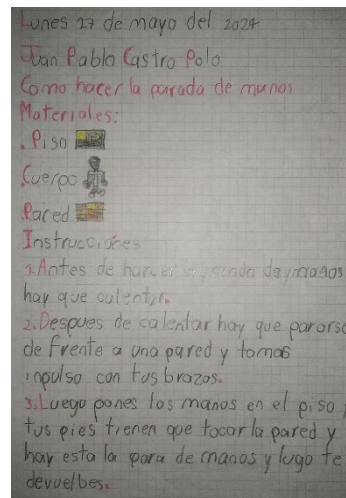 Lunes 27 de mayo del 2024
Juan Pablo Castro Polo
Como hacer la parada de manos
Materiales:
.Piso
.Cuerpo
.Pared
Instrucciones
1.Antes de hacer la parada de manos
hay que calentar.
2.Despues de calentar hay que pararse
de frente a una pared y tomas
inpulso con tus brazos.
3.Luego pones las manos en el piso,
tus pies tienen que tocar la pared y
hay esta la para de manos y lugo te
devuelbes.